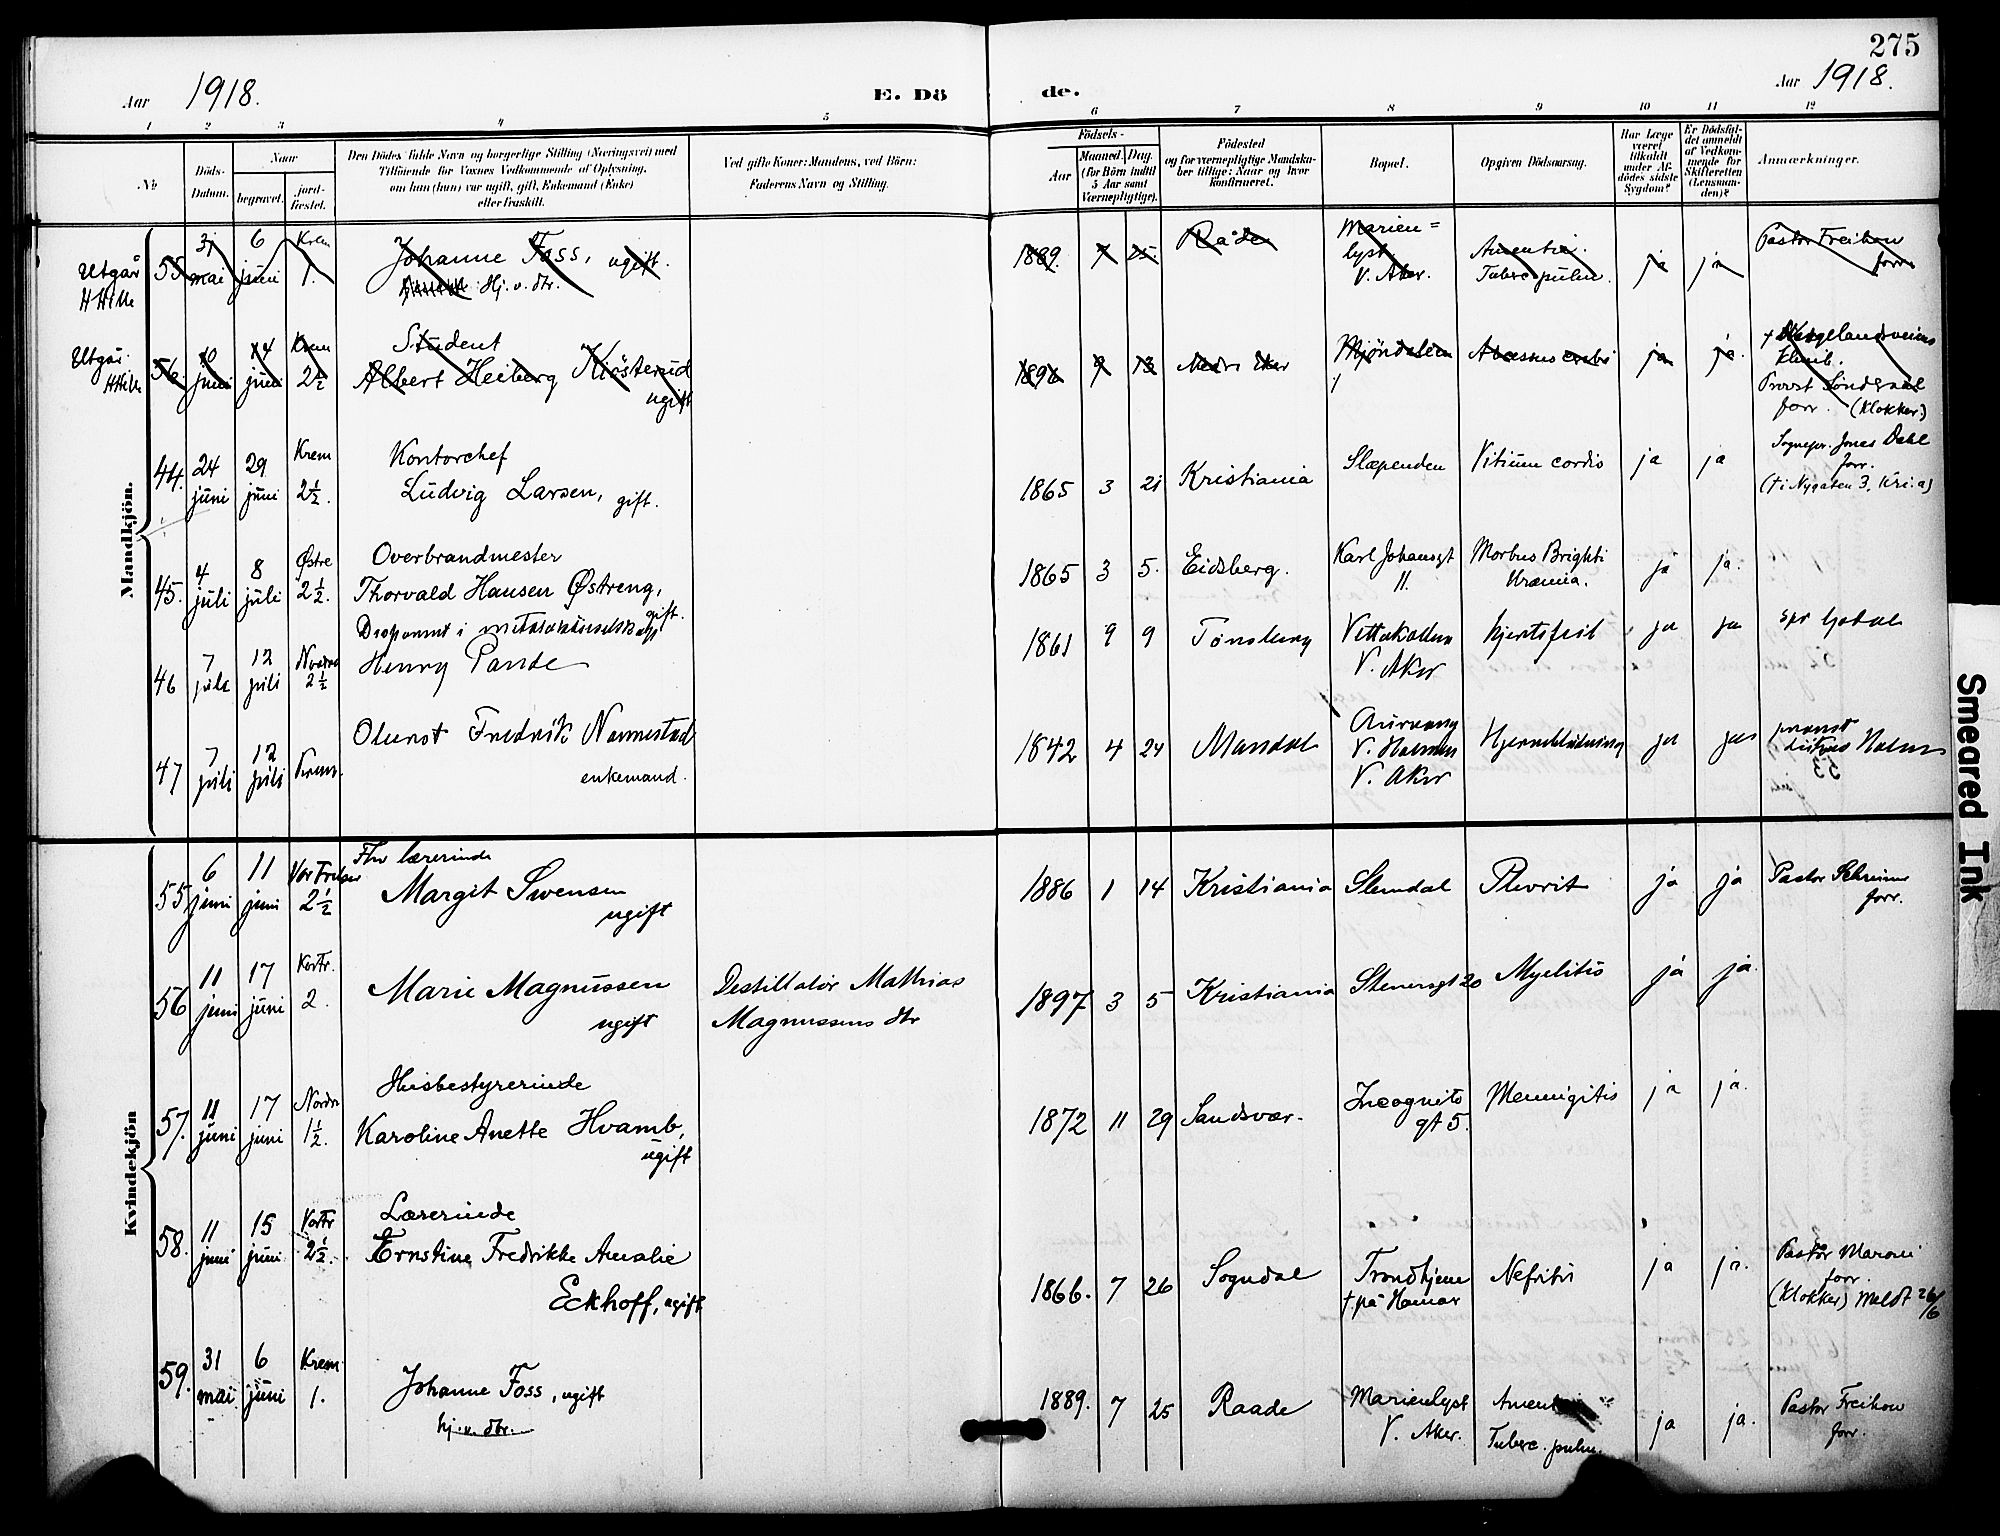 275
Aar 1918.
E. Dö
de.
Aar 1918.
1 2 3 4 5 6 7 8 9 10 11 12
No
Döds-
Datum.
Naar
begravet.
jord-
fæstet.
Den Dödes fulde Navn og borgerlige Stilling (Næringsvei) med
Tilföiende for Voxnes Vedkommende af Oplysning,
om han (hun) var ugift, gift, Enkemand (Enke)
eller fraskilt.
Ved gifte Koner: Mandens, ved Börn:
Faderens Navn og Stilling.
Födsels-
Aar
Maaned. Dag.
(for Börn indtil
5 Aar samt
Værnepligtige).
Födested
og for værnepligtige Mandska-
ber tillige: Naar og hvor
konfirmeret.
Bopæl.
Opgiven Dödsaarsag.
Har Læge
været
tilkaldt
under Af-
dödes sidste
Sygdom?
Er Dödsfal-
det anmeldt
af Vedkom-
mende for
Skifteretten
(Lensman-
den)?
Anmærkninger.
Mandkjön.
Utgår
H Hille
55 31 mai 6 juni Krem 1.
Johanne Foss, ugift.
Hj. v. dtr.
1889. 7 25. Råde
Marien=
lyst
V. Aker.
Amentia.
Tuberc. pulm.
ja ja
Pastor Freihow
forr.
Utgår.
HHille
56. 10 juni 14 juni Krem 2½
Student
Albert Heiberg Kiösterud
ugift
1896 9 13 Nedre Eker Mjöndalen Abscessus cerebri ja ja.
† Wergelandsveiens
klinik.
Provst Söndraal
forr. (Klokker.)
44. 24 juni 29 juni Krem 2½.
Kontorchef
Ludvig Larsen, gift.
1865 3 21 Kristiania Slæpenden Vitium cordis ja ja
Sognepr. Jonas Dahl
forr.
(† i Nygaten 3, Kri.a)
45. 4 juli 8 juli Østre 2½.
Overbrandmester
Thorvald Hansen Østreng,
gift.
1865 3 5. Eidsberg. Karl Johansgt
11.
Morbus Brighti
Uræmia.
ja ja.
46 7 juli 12 juli Nordre 2½
Disponent i
Henry Pande
1861 9 9 Tønsberg Vettakollen
V. Aker
hjertefeil ja ja
47 7 juli 12 juli Krem.
Olunst Fredrik Narmestad
enkemand.
1842 4 24 Mandal
V. Holmen
V. Aker
Hjerneblødning ja ja
Kvindekjön
55 6 juni 11 juni Vor Frelser 2½
Fhv lærerinde
Margit Svensen
ugift
1886 1 14 Kristiania Slemdal Plevrit ja ja
Pastor Schreiner
forr.
56 11 juni 17 juni Vor Fr. 2.
Marie Magnussen
ugift
Destillatör Mathias
Magnussens dtr
1897 3 5 Kristiania Stenersgt 20 Myelitis ja ja.
57. 11 juni 17 juni Nordre 1½.
Husbestyrerinde
Karoline Anette Hvamb,
ugift
1872 11 29 Sandsvær. Incognito
gt 5.
Menningitis ja ja.
58. 11 juni 15 juni Vor Fr 2½.
Lærerinde
Ernstine Fredrikke Amalie
Eckhoff, ugift
1866. 7 26 Sogndal Trondhjem
† på Hamar
Nefritis ja ja.
Pastor Maroni
forr.
(Klokker) Meldt 26/6
59. 31 mai 6 juni Krem. 1.
Johanne Foss, ugift
hj. v. dtr.
1889. 7 25 Raade Marienlyst
V. Aker.
Tuberc. pulm.
ja ja.
Pastor Freihow
forr.
Smeared Ink